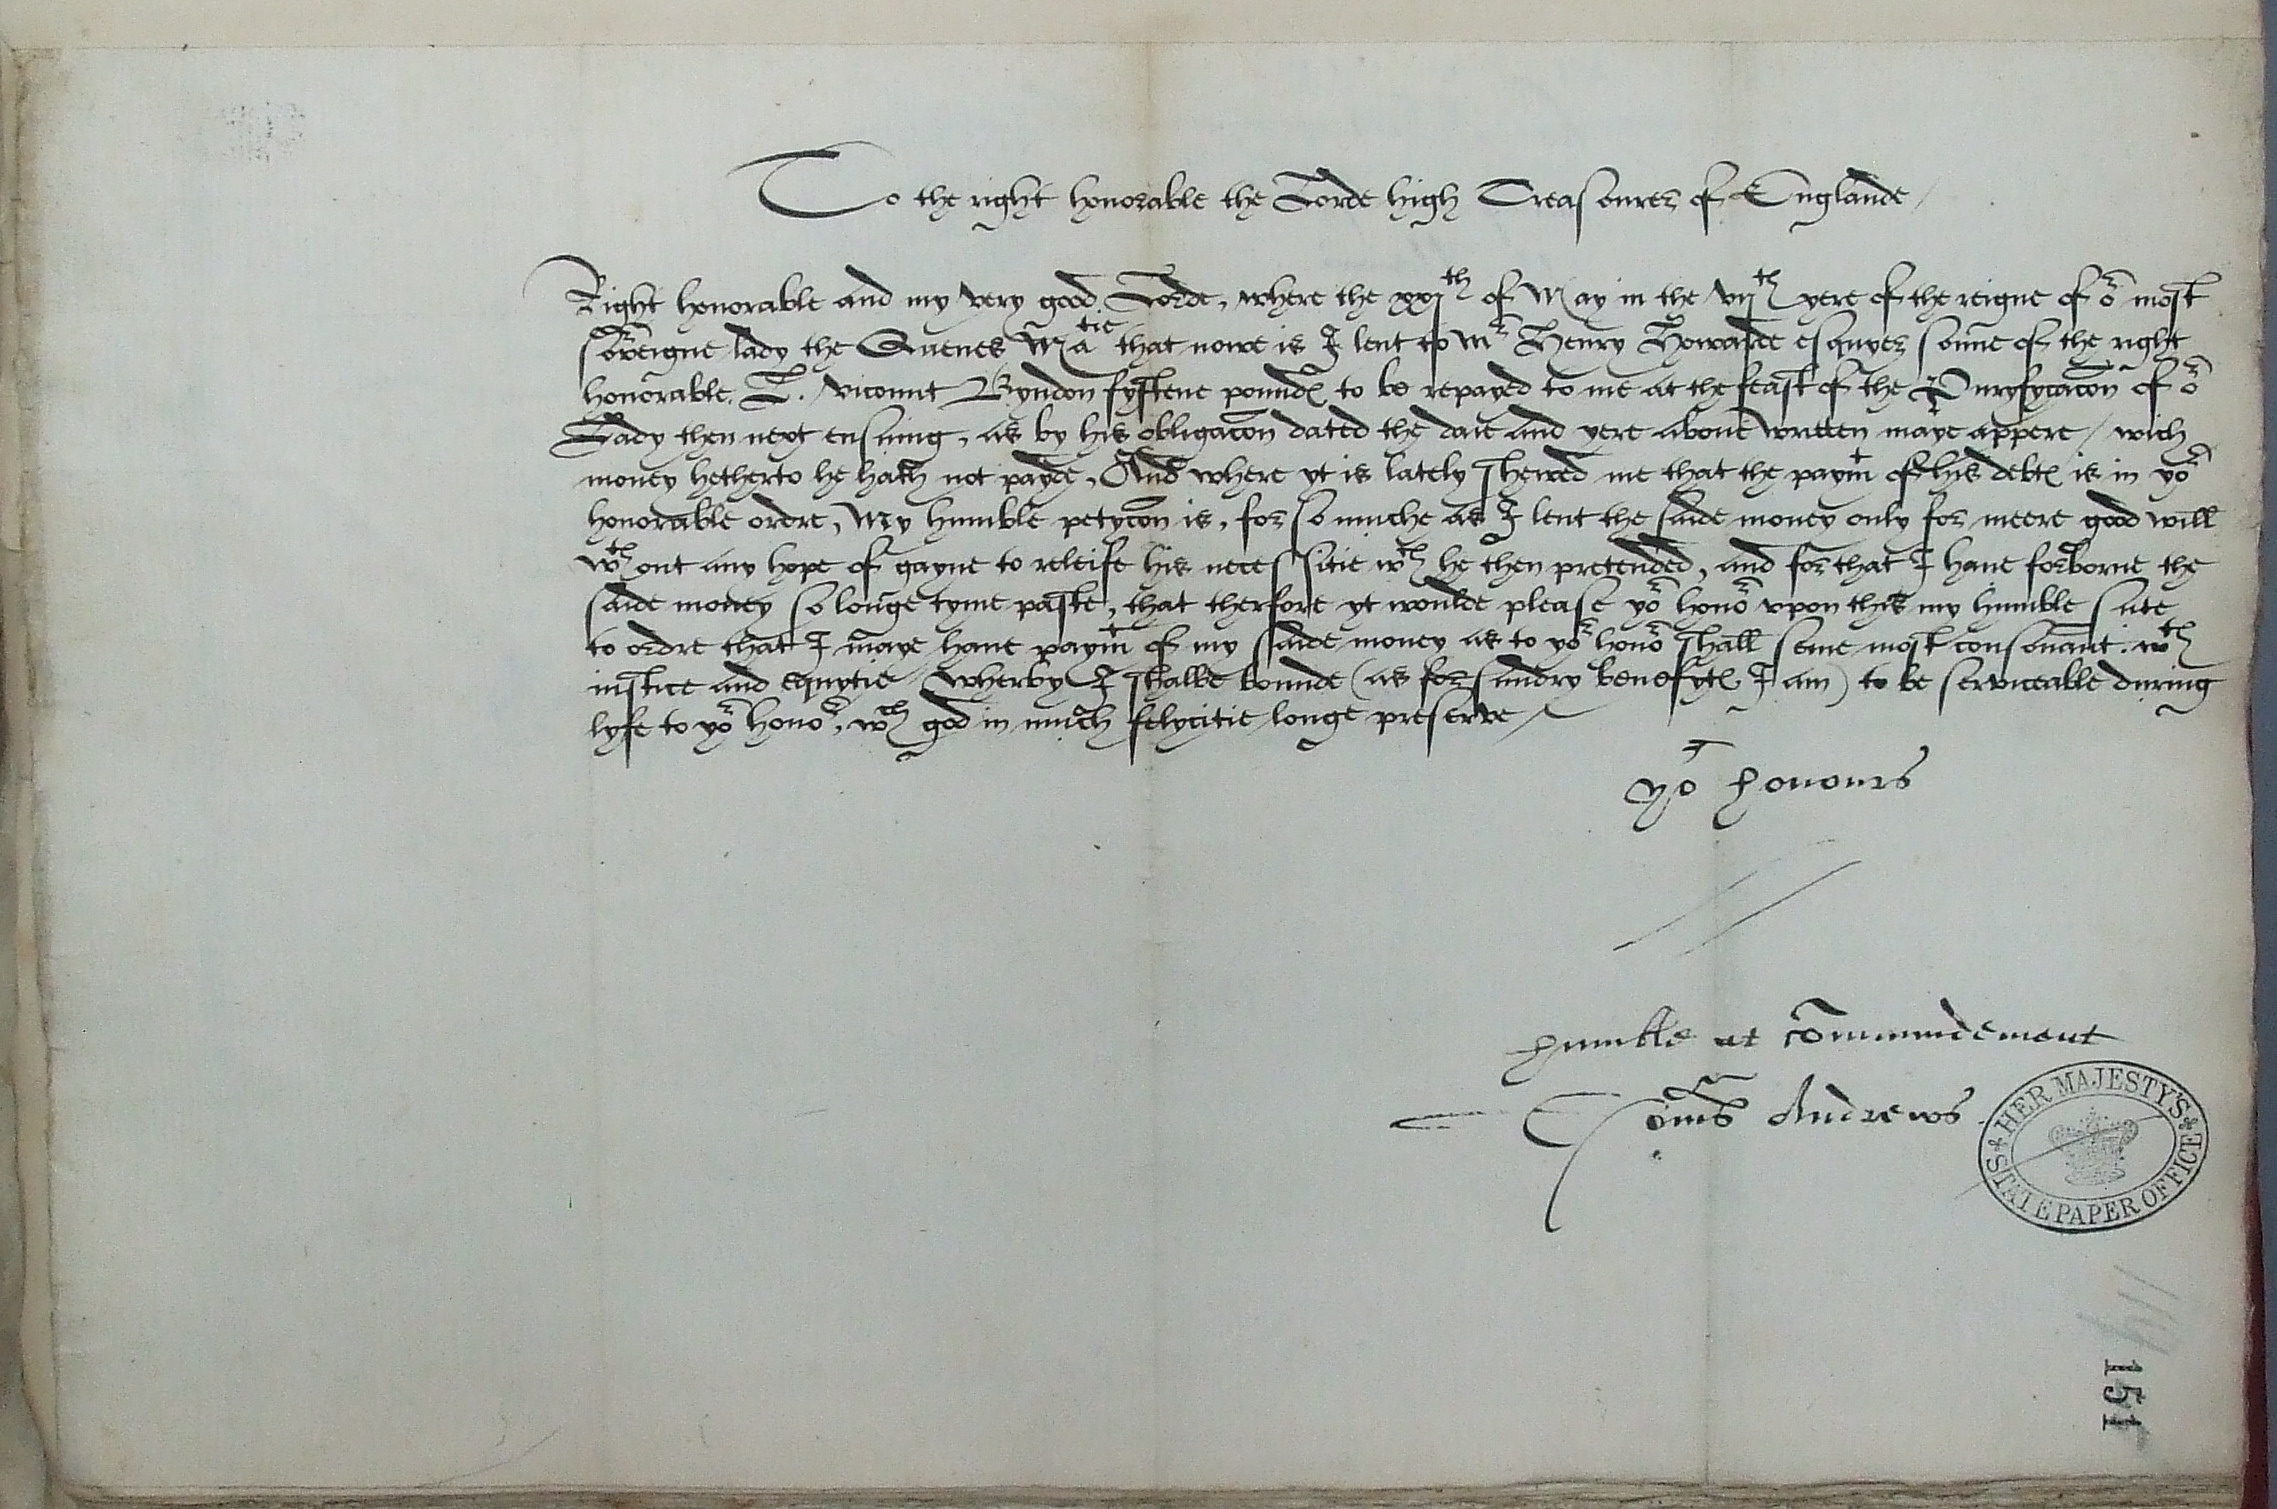 To the right honorable the Lorde high Treasourer of Englande /
Right honorable and my very good Lorde, where the xxjth of May in the vijth yere of the reigne of or most
soveigne lady the Quenes Matie that nowe is I lent to Mr Henry Howarde esquyer sonne of the right
honorable. T. vicount Byndon fyftene pound to be repayed to me at the feast of the Puryfycacon of or
Lady then next ensuing, as by his obligacon dated the daie and yere above written maye appere / wich
money hetherto he hath not payde, And where yt is lately shewed me that the paymt of his debt is in yor
honorable ordre, My humble petycon is, for so muche as I lent the saide money only for meere good will
wth out any hope of gayne to releife his necessitie wch he then pretended, and for that I have forborne the
saide money so longe tyme paste, that therfore yt woulde please yor honor upon this my humble sute
to ordre that I maye have paymt of my saide money as to yor honor shall seme most consonant. wth
iustice and equytie / wherby I shalbe bounde (as for sundry benefyt I am) to be serviceable during
lyfe to yor honor, wch god in much felycitie longe preserve /
yor honours
humble at comaundement
Thoms Andrews
HER MAJESTY'S STATE PAPER OFFICE
119
151